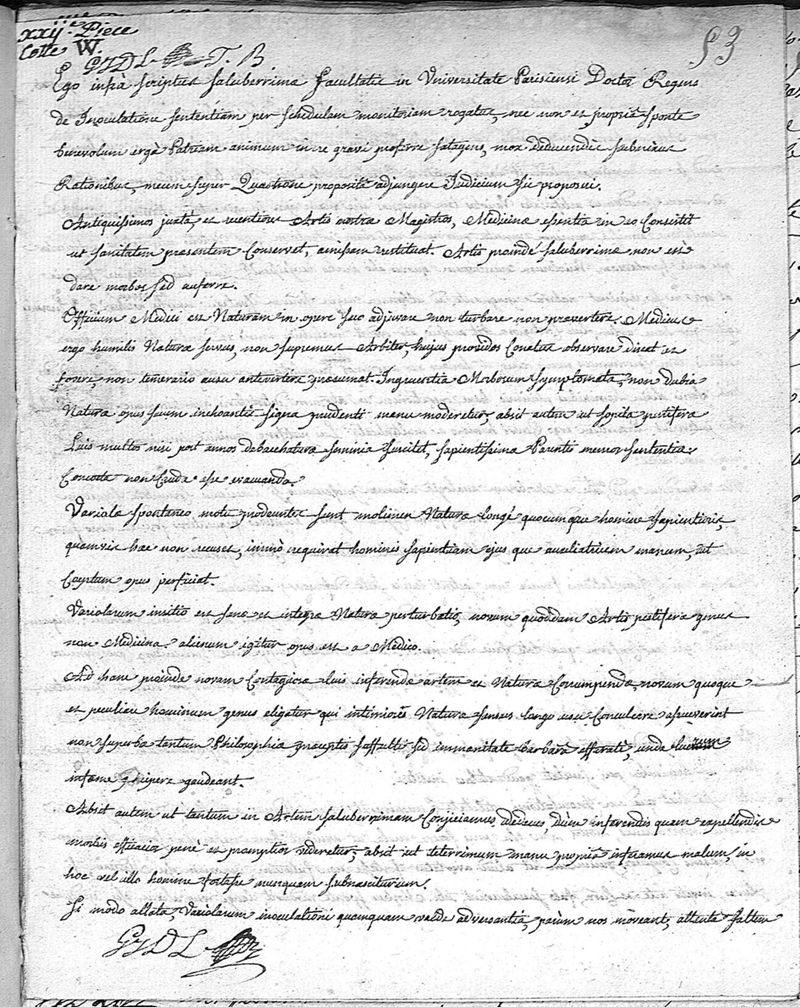 xxij.e Piece
Cotte W.
53
GJDL T. B.
Ego infrà scriptus saluberrimæ facultatis in Universitate Parisiensi Doctor Regens
de Inoculatione sententiam per schedulam monitoriam rogatus, nec non et propriâ sponte
benevolum ergà Patriam animum in re gravi proferre satagens, mox deducendis subnixus
Rationibus, meum super Quæstione propositâ adjungere Judicium sic proposui.
Antiquissimos juxta, et recentiores Artis nostræ Magistros, Medicinæ essentia in eo Consistit
ut sanitatem præsentem Conservet, amissam restituat. Artis proindè saluberrimæ non est
dare morbos sed auferre.
Officium Medici est Naturam in opere suo adjuvare non turbare non prævertere. Medicus
ergo humilis Naturæ servus, non supremus Arbiter, hujus providos Conatus observare discat et
fovere non temerario ausu antevertere præsumat. Ingruentia Morborum symptomata, non dubia
Naturæ opus suum inchoantis signa prudenti manu moderetur, absit autem ut sopita pestiferæ
Luis multos nisi post annos debacchaturæ seminia suscitet, sapientissimæ Parentis memor sententiæ
Concocta non Cruda esse evacuanda.
Variolæ spontaneo motu prodeuntes sunt molimen Naturæ longè quocumque homine sapientioris,
quamvis hæc non recuset, immò requirat hominis sapientiam ejusque auxiliatricem manum, ut
Coeptum opus perficiat.
Variolarum insitio est sanæ et integræ Naturæ perturbatio, novum quoddam Artis pestiferæ genus
non Medicinæ. alienum igitur opus est a Medico.
Ad hanc proinde novam Contagiosæ luis inferendæ artem et Naturæ Corrumpendæ, novum quoque
et peculiare hominum genus eligatur qui intimiores Naturæ sensus longo usu Conculcare assueverint
non superbæ tantum Philosophiæ præceptis suffulti sed immanitate barbara efferati, unde lucrum
infame percipere gaudeant.
Absit autem ut tantum in Artem saluberrimam Conjiciamus dedecus, dum inferendis quam expellendis
morbis efficacior penè et promptior videretur; absit ut teterrimum manu propriâ inferamus malum, in
hoc vel illo homine fortasse nunquam subnasciturum.
Si modo allata Variolarum inoculationi quamquam valde adversantia, parùm nos moveant, attente saltem
GJDL